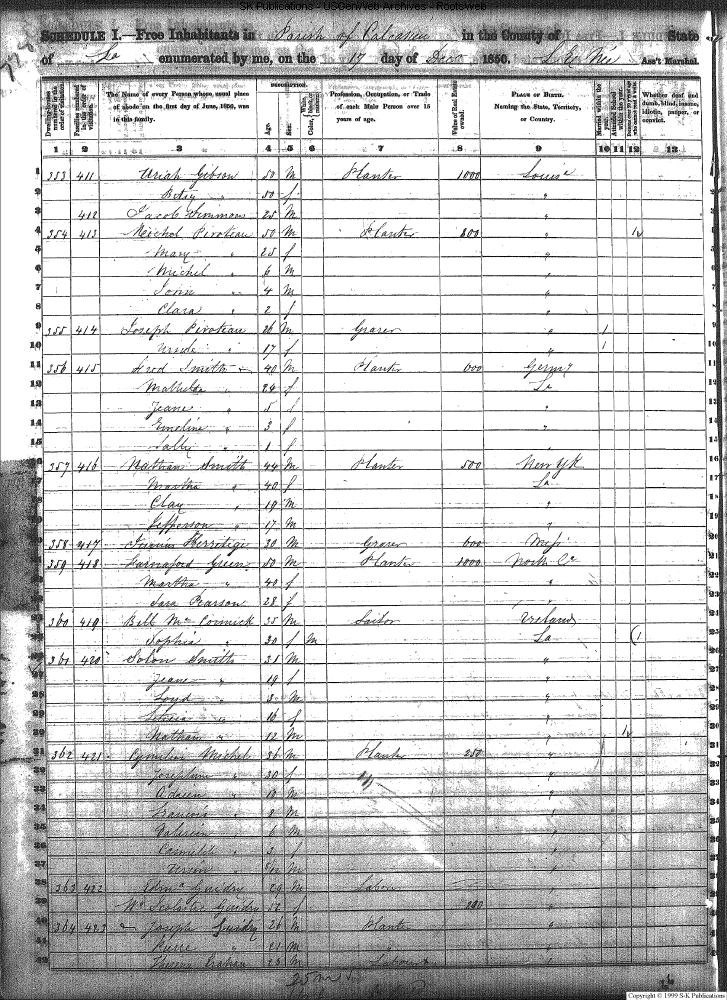 SK Publications - USGenWeb Archives - Rootsweb
SCHEDULE I.—Free Inhabitants in Parish of Calcasieu in the County of State
of La enumerated by me, on the 17 day of Decr 1850. Ass't Marshal.
Dwelling-houses numbered in the order of visitation.
Families numbered in the order of visitation.
The Name of every Person whose usual place of abode on the first day of June, 1850, was in this family.
DESCRIPTION.
Age.
Sex.
Color, White, black, or mulatto.
Profession, Occupation, or Trade of each Male Person over 15 years of age.
Value of Real Estate owned.
PLACE OF BIRTH.
Naming the State, Territory, or Country.
Married within the year.
Attended School within the year.
Whether deaf and dumb, blind, insane, idiotic, pauper, or convict.
1 2 3 4 5 6 7 8 9 10 11 12 13
1 353 411 Uriah Gibson 50 M Planter 1000 Louise
2 Betsy " 50 f "
3 412 Jacob Simmons 25 M "
4 354 413 Michel Piroteau 50 M Planter 800 "
5 Mary " 25 f "
6 Michel " 6 M "
7 John " 4 M "
8 Clara " 2 f "
9 355 414 Joseph Piroteau 26 M Grazer " 1
10 Ursule " 17 f " 1
11 356 415 Fred Smith 40 M Planter 600 Germy
12 Mathilda " 24 f La
13 Jeane " 5 f "
14 Emeline " 3 f "
15 Sally " 1 f "
357 416 Nathan Smith 44 M Planter 500 New Yk
Martha " 40 f La
Clay " 19 M "
Jefferson " 17 M "
358 417 Herritige 30 M Grazer 600 Missi
359 418 Green 50 M Planter 1000 North Ca
Martha " 40 f "
Sara Pearson 28 f "
360 419 Bill Mc Cormick 35 M Sailor Ireland
Sophia " 30 f M La
361 420 Solon Smith 31 M "
Jeane " 19 f "
Loyd " 3 M "
" 16 f "
Nathan " 12 M "
362 421 Michel 36 M Planter 250 "
Josephine " 30 f "
" 10 M "
Francois " 8 M "
Valerien " 6 M "
" 3 f "
M "
363 422 Edmd Guidry 24 M Labor "
Guidry 52 f 200 "
364 423 Joseph Guidry 26 M Planter "
Pierre " 21 M " "
23 M Labour "
Copyright © 1999 S-K Publications